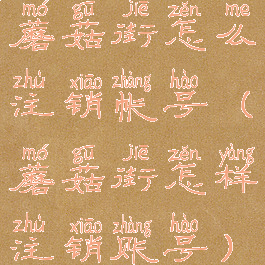 mó gū jiē zěn me
蘑菇街怎么
zhù xiāo zhàng hào
注销帐号（
mó gū jiē zěn yàng
蘑菇街怎样
zhù xiāo zhàng hào
注销账号）